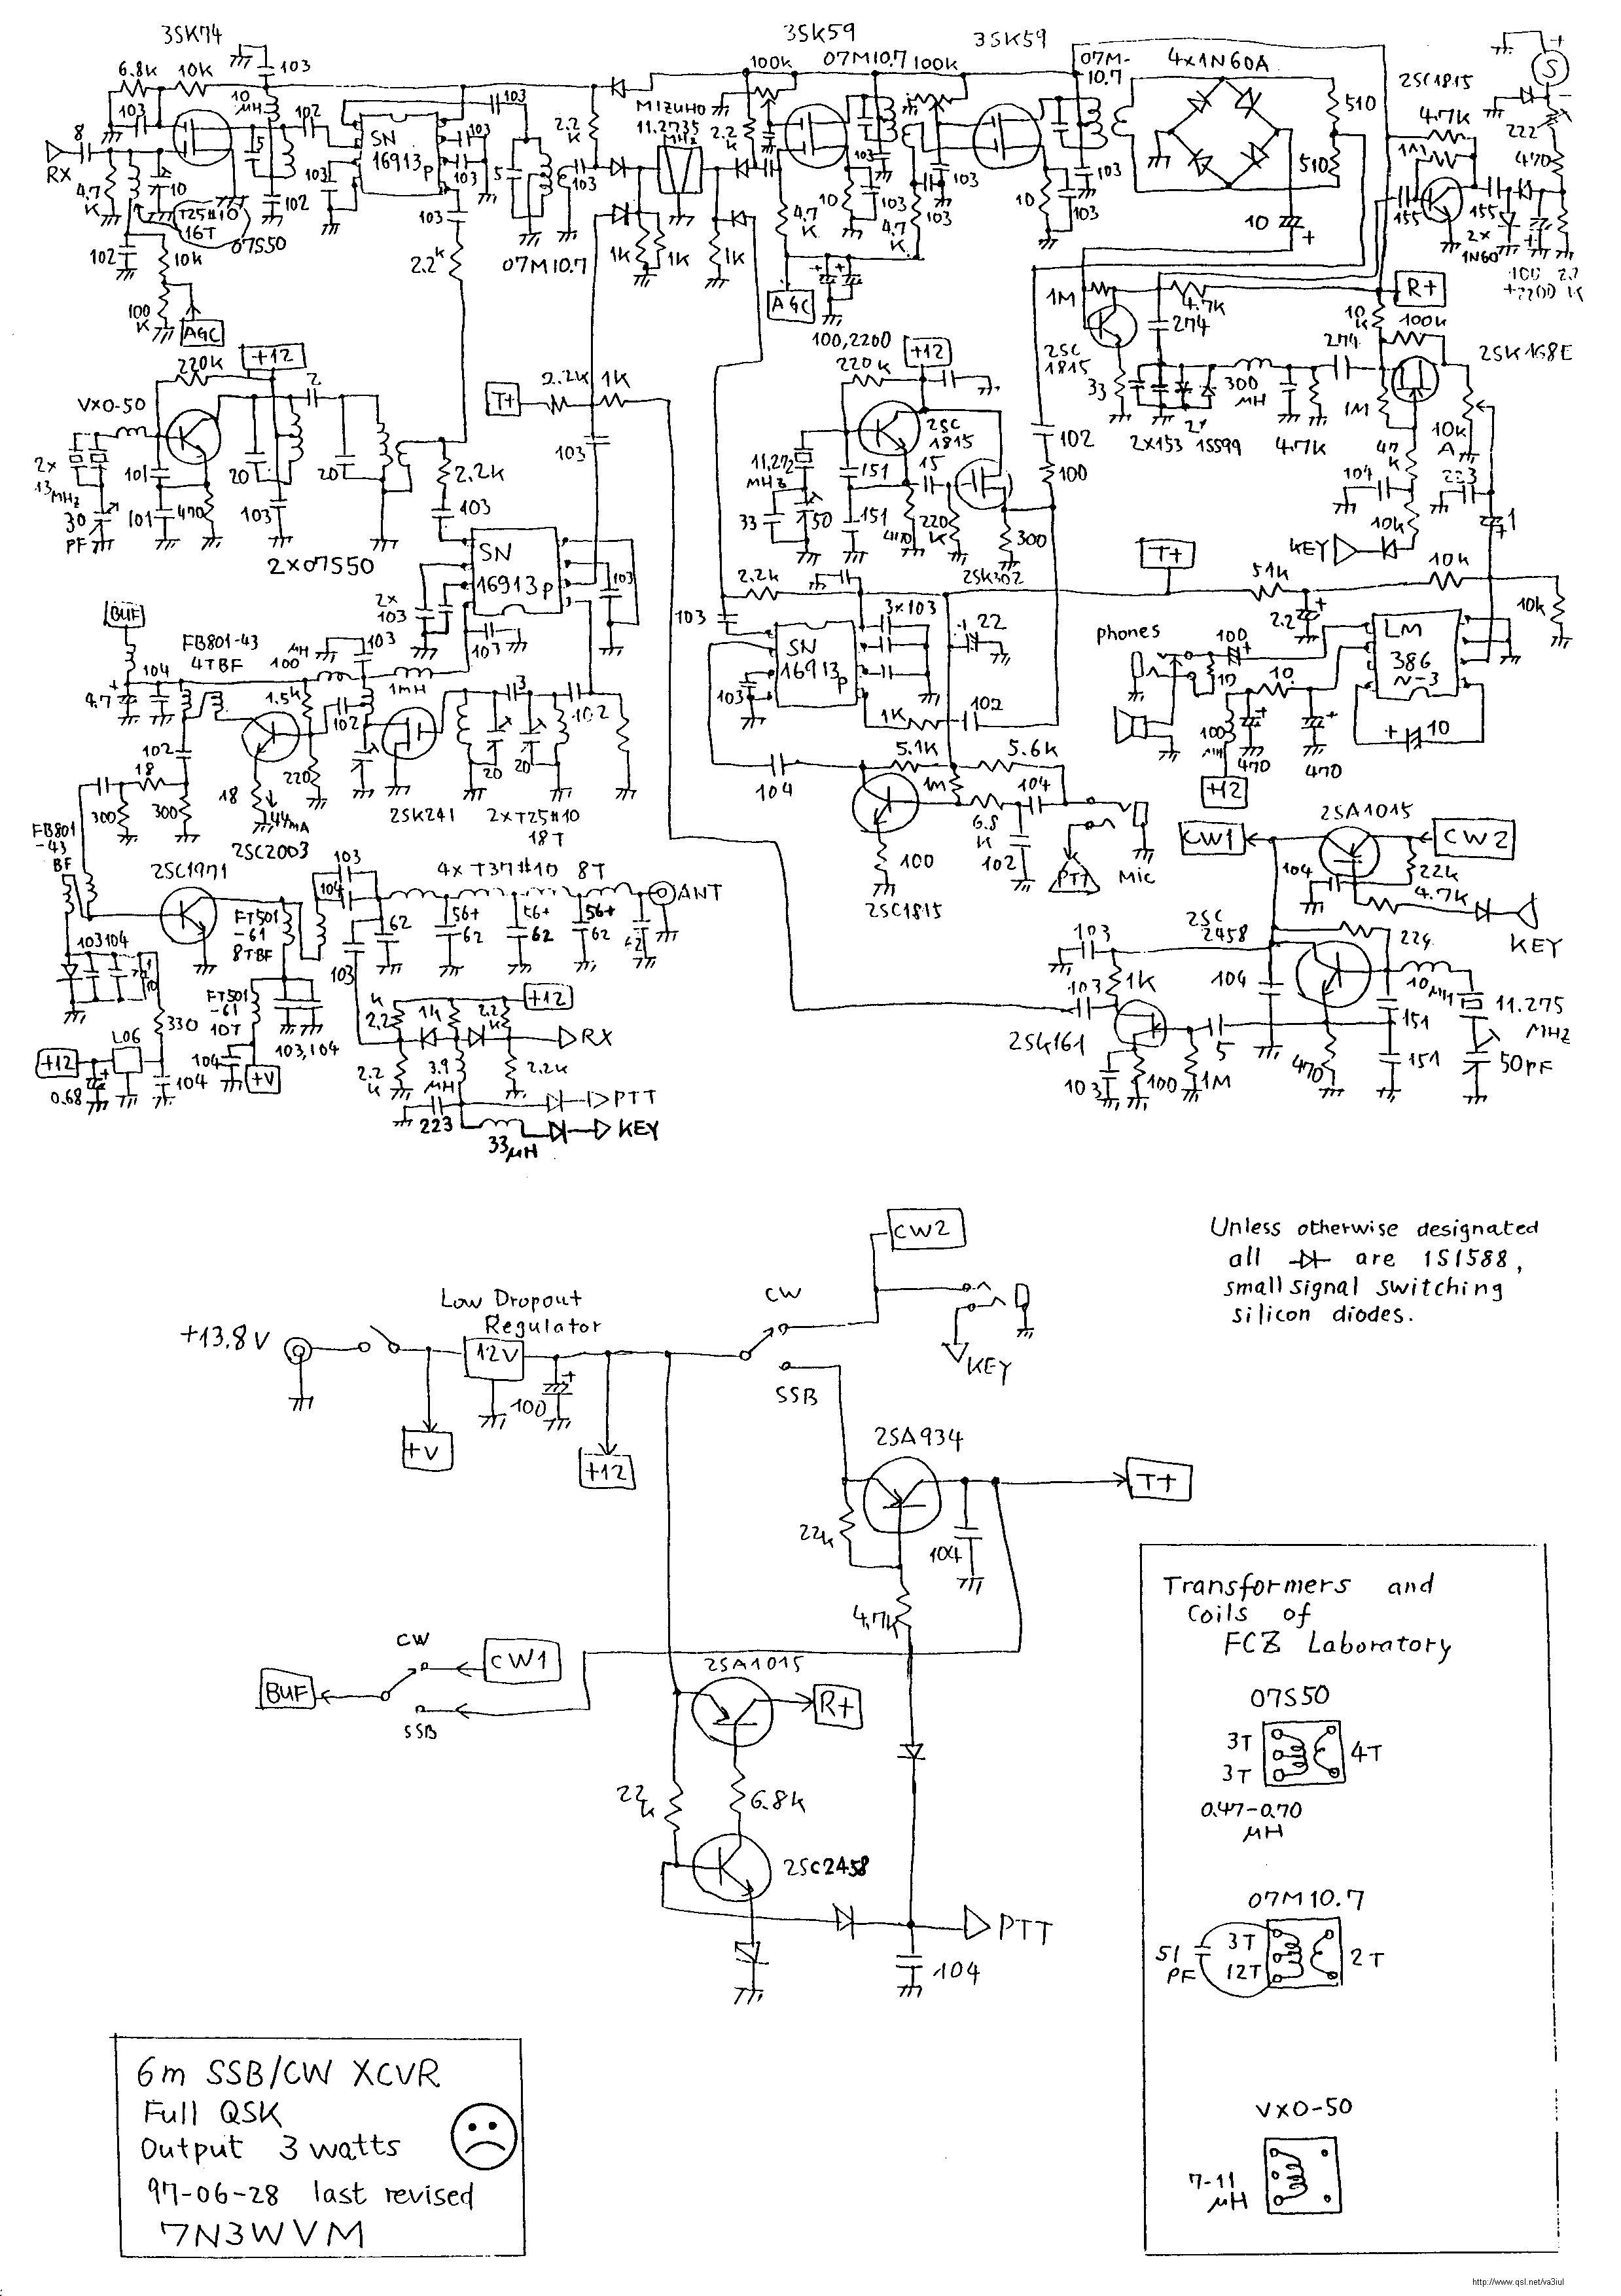 3SK74
3SK59
3SK59
6.8K
10K
103
07M10.7
100K
100K
07M-
10.7
4x1N60A
2SC1815
S
103
10
μH
102
103
2.2
K
MIZUHO
11.2735
MHz
2.2
K
510
4.7K
222
8
RX
SN
16913P
103
1M
470
4.7
K
10
5
103
5
103
103
103
510
T25#10
16T
102
103
10
103
10
103
10
155
155
102
07S50
103
4.7
K
4.7
K
103
2x
1N60
10K
2.2K
07M10.7
1K
1K
1K
100
2.2
+2200
K
100
K
AGC
AGC
100,2200
1M
4.7K
R+
10
K
100K
220K
+12
220K
+12
2SC
1815
274
274
2SK168E
VXO-50
2
T+
2.2K
1K
33
300
μH
1M
10K
A
2x
13MHz
101
20
20
2.2K
103
2SC
1815
102
2x153
2x
1S599
4.7K
47
K
30
PF
101
470
103
103
11.272
MHz
151
15
100
104
223
2x07S50
33
50
151
470
220
K
300
10K
1
KEY
SN
16913P
103
2SK302
T+
51K
10K
2x
103
103
2.2K
103
3x103
22
2.2
10K
BUF
FB801-43
4TBF
100
μH
103
1mH
SN
16913P
phones
100
LM
386
N-3
104
4.7
1.5K
102
3
102
103
10
10
1K
102
100
μH
470
470
10
102
18
220
20
20
5.1K
5.6K
104
1M
104
+12
300
300
18
44mA
2SK241
2xT25#10
18T
6.8
K
102
PTT
Mic
2SA1015
FB801
-43
BF
2SC2003
100
2SC1815
CW1
CW2
104
22K
2SC1971
103
104
4xT37#10 8T
ANT
4.7K
FT501
-61
8TBF
62
56+
62
56+
62
56+
62
62
103
2SC
2458
KEY
103104
103
1K
104
10μH
11.275
MHz
FT501
-61
10T
2.2
K
1K
2.2
K
+12
103
151
330
RX
2SK161
5
+12
L06
103,104
2.2
K
3.9
μH
2.2K
470
151
50PF
104
+V
103
100
1M
0.68
104
PTT
223
KEY
33μH
CW2
Unless otherwise designated
all are 1S1588,
small signal switching
silicon diodes.
Low Dropout
Regulator
CW
+13.8V
12V
KEY
100
SSB
+V
+12
2SA934
T+
22K
104
4.7K
Transformers and
Coils of
FCZ Laboratory
CW
CW1
2SA1015
BUF
R+
SSB
07S50
3T
4T
3T
0.47-0.70
μH
22
K
6.8K
2SC2458
07M10.7
51
PF
3T
12T
2T
PTT
104
6m SSB/CW XCVR
Full QSK
Output 3 watts
97-06-28 last revised
7N3WVM
VXO-50
7-11
μH
http://www.qsl.net/va3iul